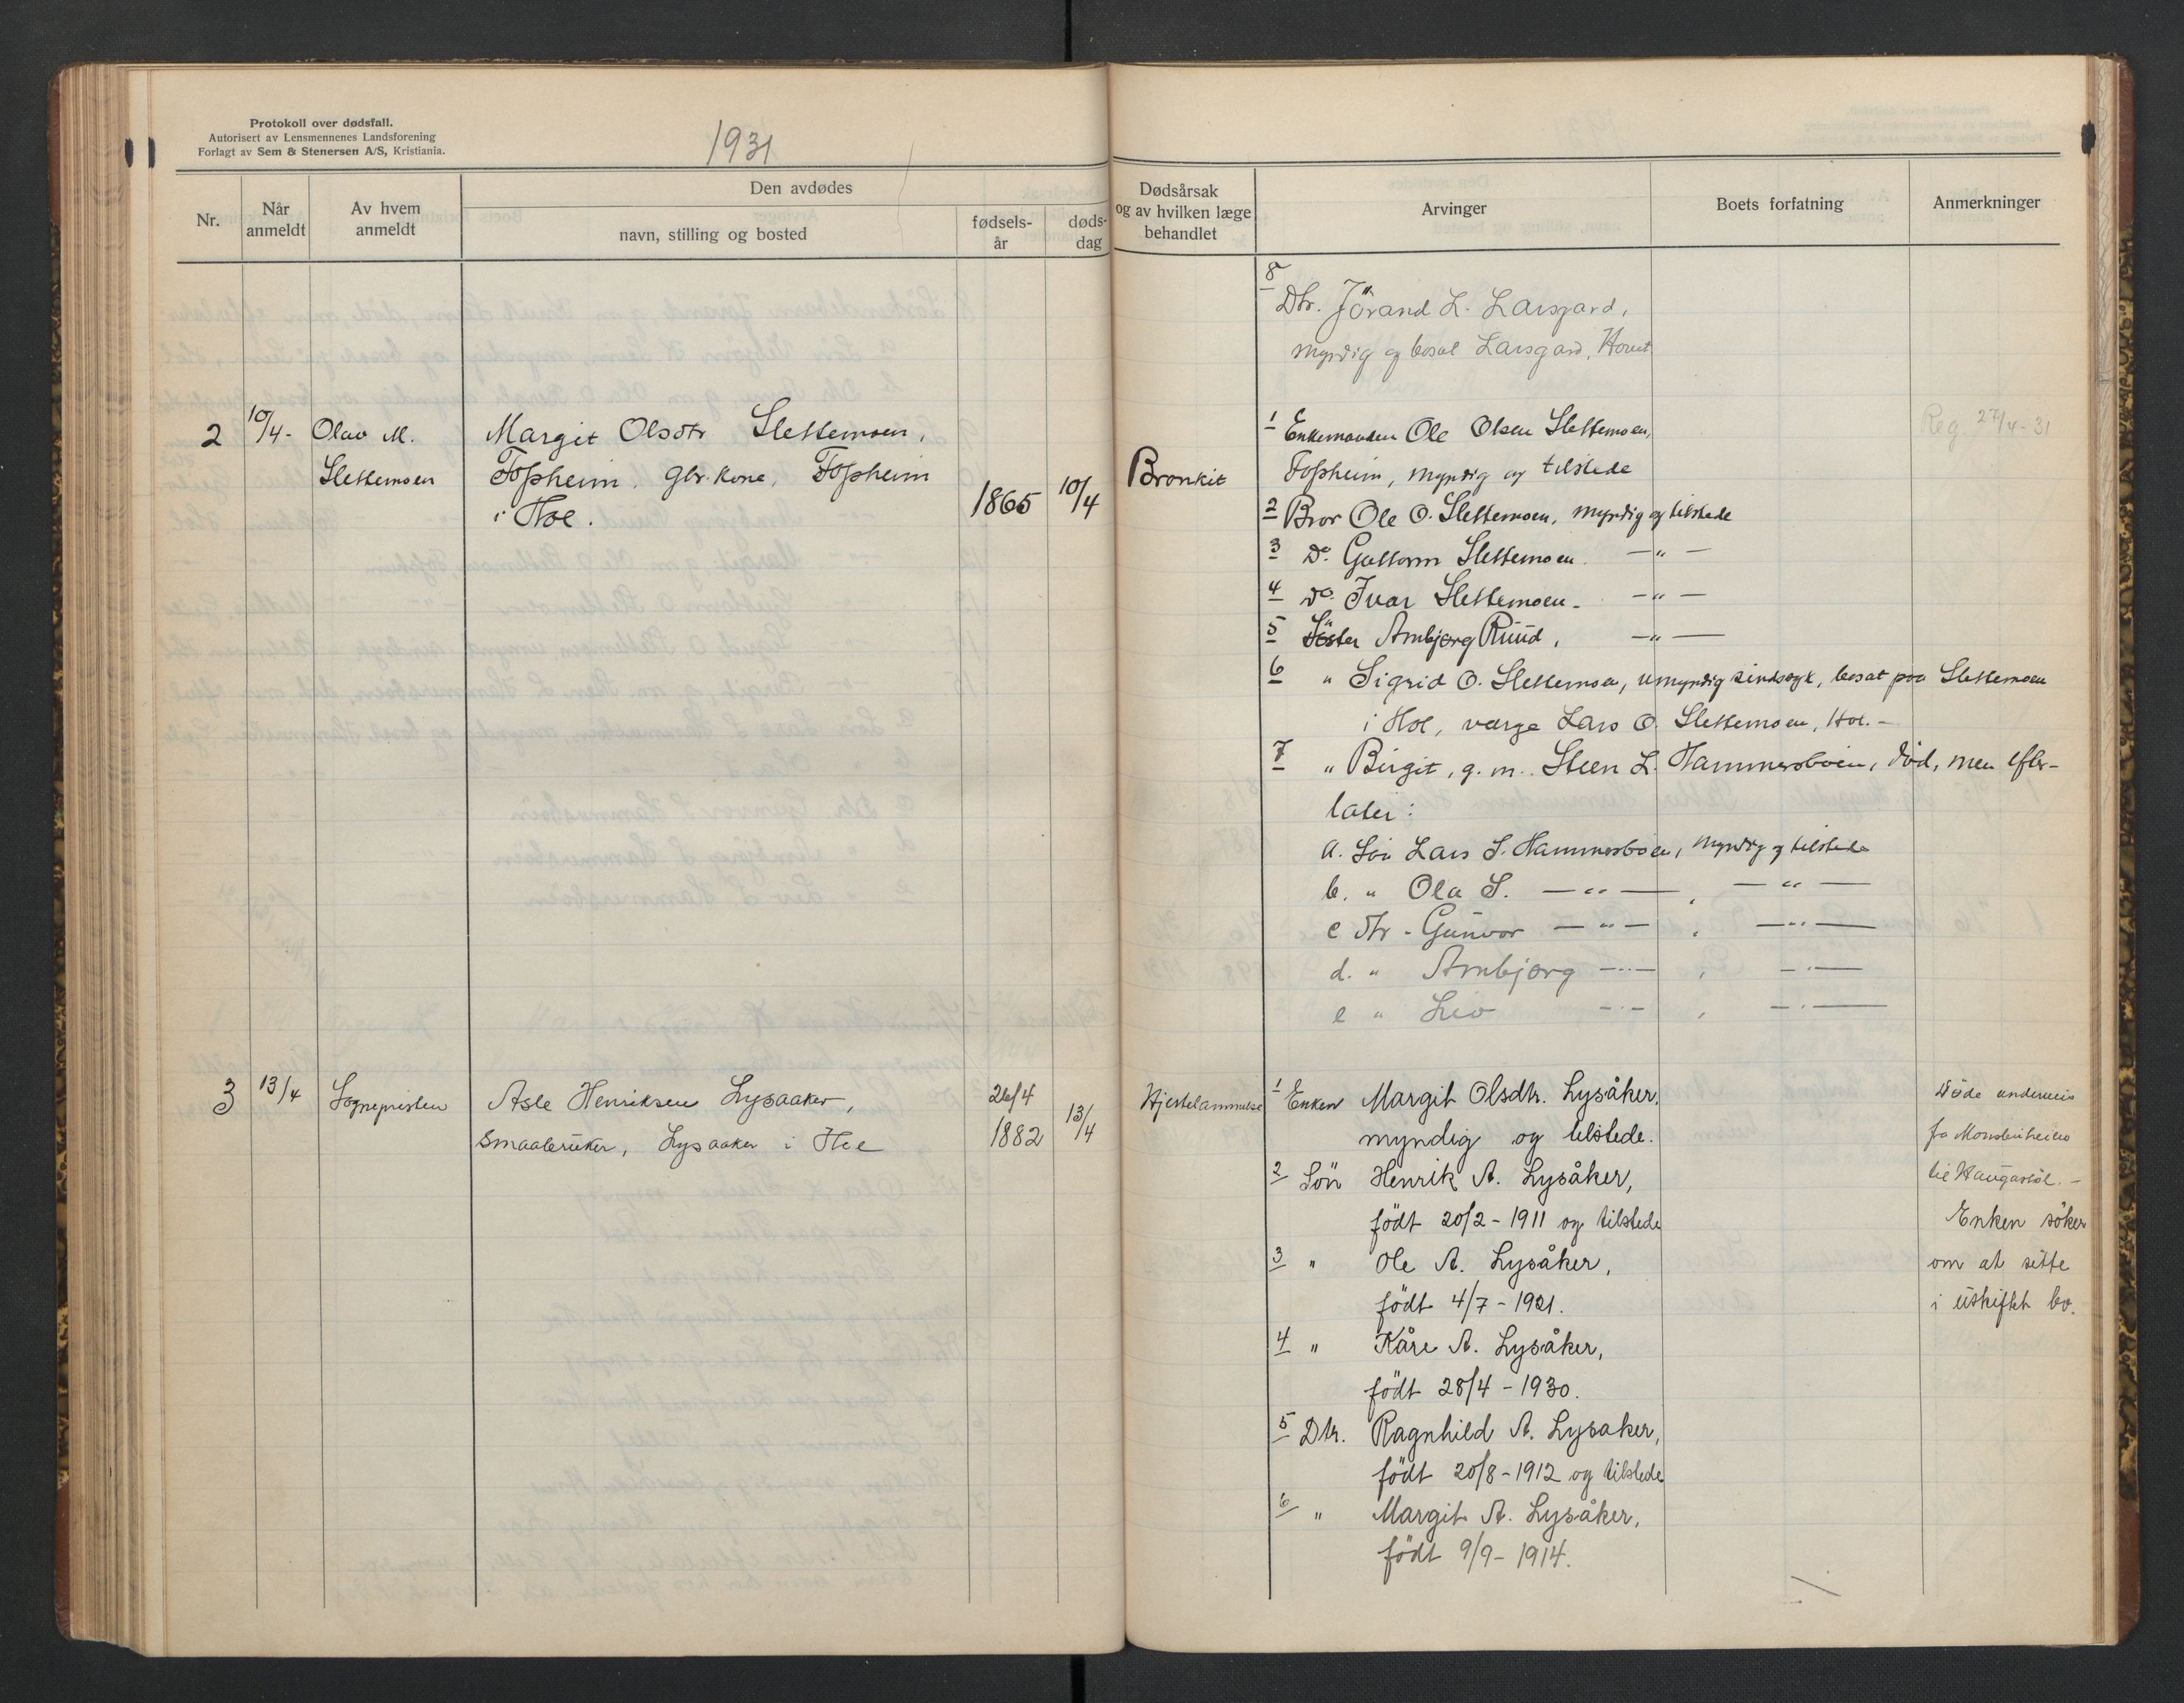 Protokoll over dødsfall.
Autorisert av Lensmennenes Landsforening
Forlagt av Sem & Stenersen A/S, Kristiania.
1931
Nr.
Når
anmeldt
Av hvem
anmeldt
Den avdødes
navn, stilling og bosted
fødsels-
år
døds-
dag
Dødsårsak
og av hvilken læge
behandlet
Arvinger
Boets forfatning
Anmerkninger
8
Dtr. Jörand L. Larsgard,
myndig og bosat Larsgard, Hovet
2
10/4-
Olav M.
Slettemoen
Margit Olsdtr Slettemoen,
Fopheim. Gbr. kone, Fopheim
i Hol.
1865
10/4
Bronkit
1 Enkemanden Ole Olsen Slettemoen,
Fopheim, myndig og tilstede
2 Bror Ole O. Slettemoen, myndig og tilstede
3 Do Guttorm Slettemoen. —"—
4 do Ivar Slettemoen. —"—
5 Söster Ambjørg Ruud, —"—
6 " Sigrid O. Slettemoen, umyndig sindssyk, bosat paa Slettemoen
i Hol, værge Lars O. Slettemoen, Hol.-
7 " Birgit, g. m. Steen L. Hammersböen, död, men efter-
later:
a. Sön Lars S. Hammersböen, myndig og tilstede
b. " Ola S. —"— , —"—
c dtr - Gunvor —"— , —"—
d. " Ambjørg —"— , —"—
e " Liv —"— , —"—
Reg. 27/4-31
3
13/4
Sognepresten
Asle Henriksen Lysaaker,
Smaabruker, Lysaaker i Hol
26/4
1882
13/4
Hjertelammelse
1 Enken Margit Olsdtr. Lysåker.
myndig og tilstede.
2 Sön Henrik A. Lysåker,
födt 20/2-1911 og tilstede
3 " Ole A. Lysåker,
födt 4/7-1921.
4 " Kåre A. Lysåker,
födt 28/4-1930.
5 Dtr. Ragnhild A. Lysaker,
födt 20/8-1912 og tilstede
6 " Margit A. Lysåker,
födt 9/9-1914.
Döde underveis
fra
til Haugastöl.-
Enken söker
om at sitte
i uskiftet bo.